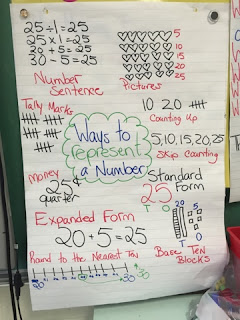 25 ÷ 1 = 25
25 x 1 = 25
20 + 5 = 25
30 - 5 = 25
Number
Sentence
5
10
15
20
25
Pictures
Tally Marks
10 20
Counting Up
5, 10, 15, 20, 25
Skip Counting
Ways to
represent
a Number
money
25¢
quarter
Standard
Form
25
T O
Expanded Form
20 + 5 = 25
20 5
T O
Base Ten
Blocks
Round to the Nearest Ten
20
30
30